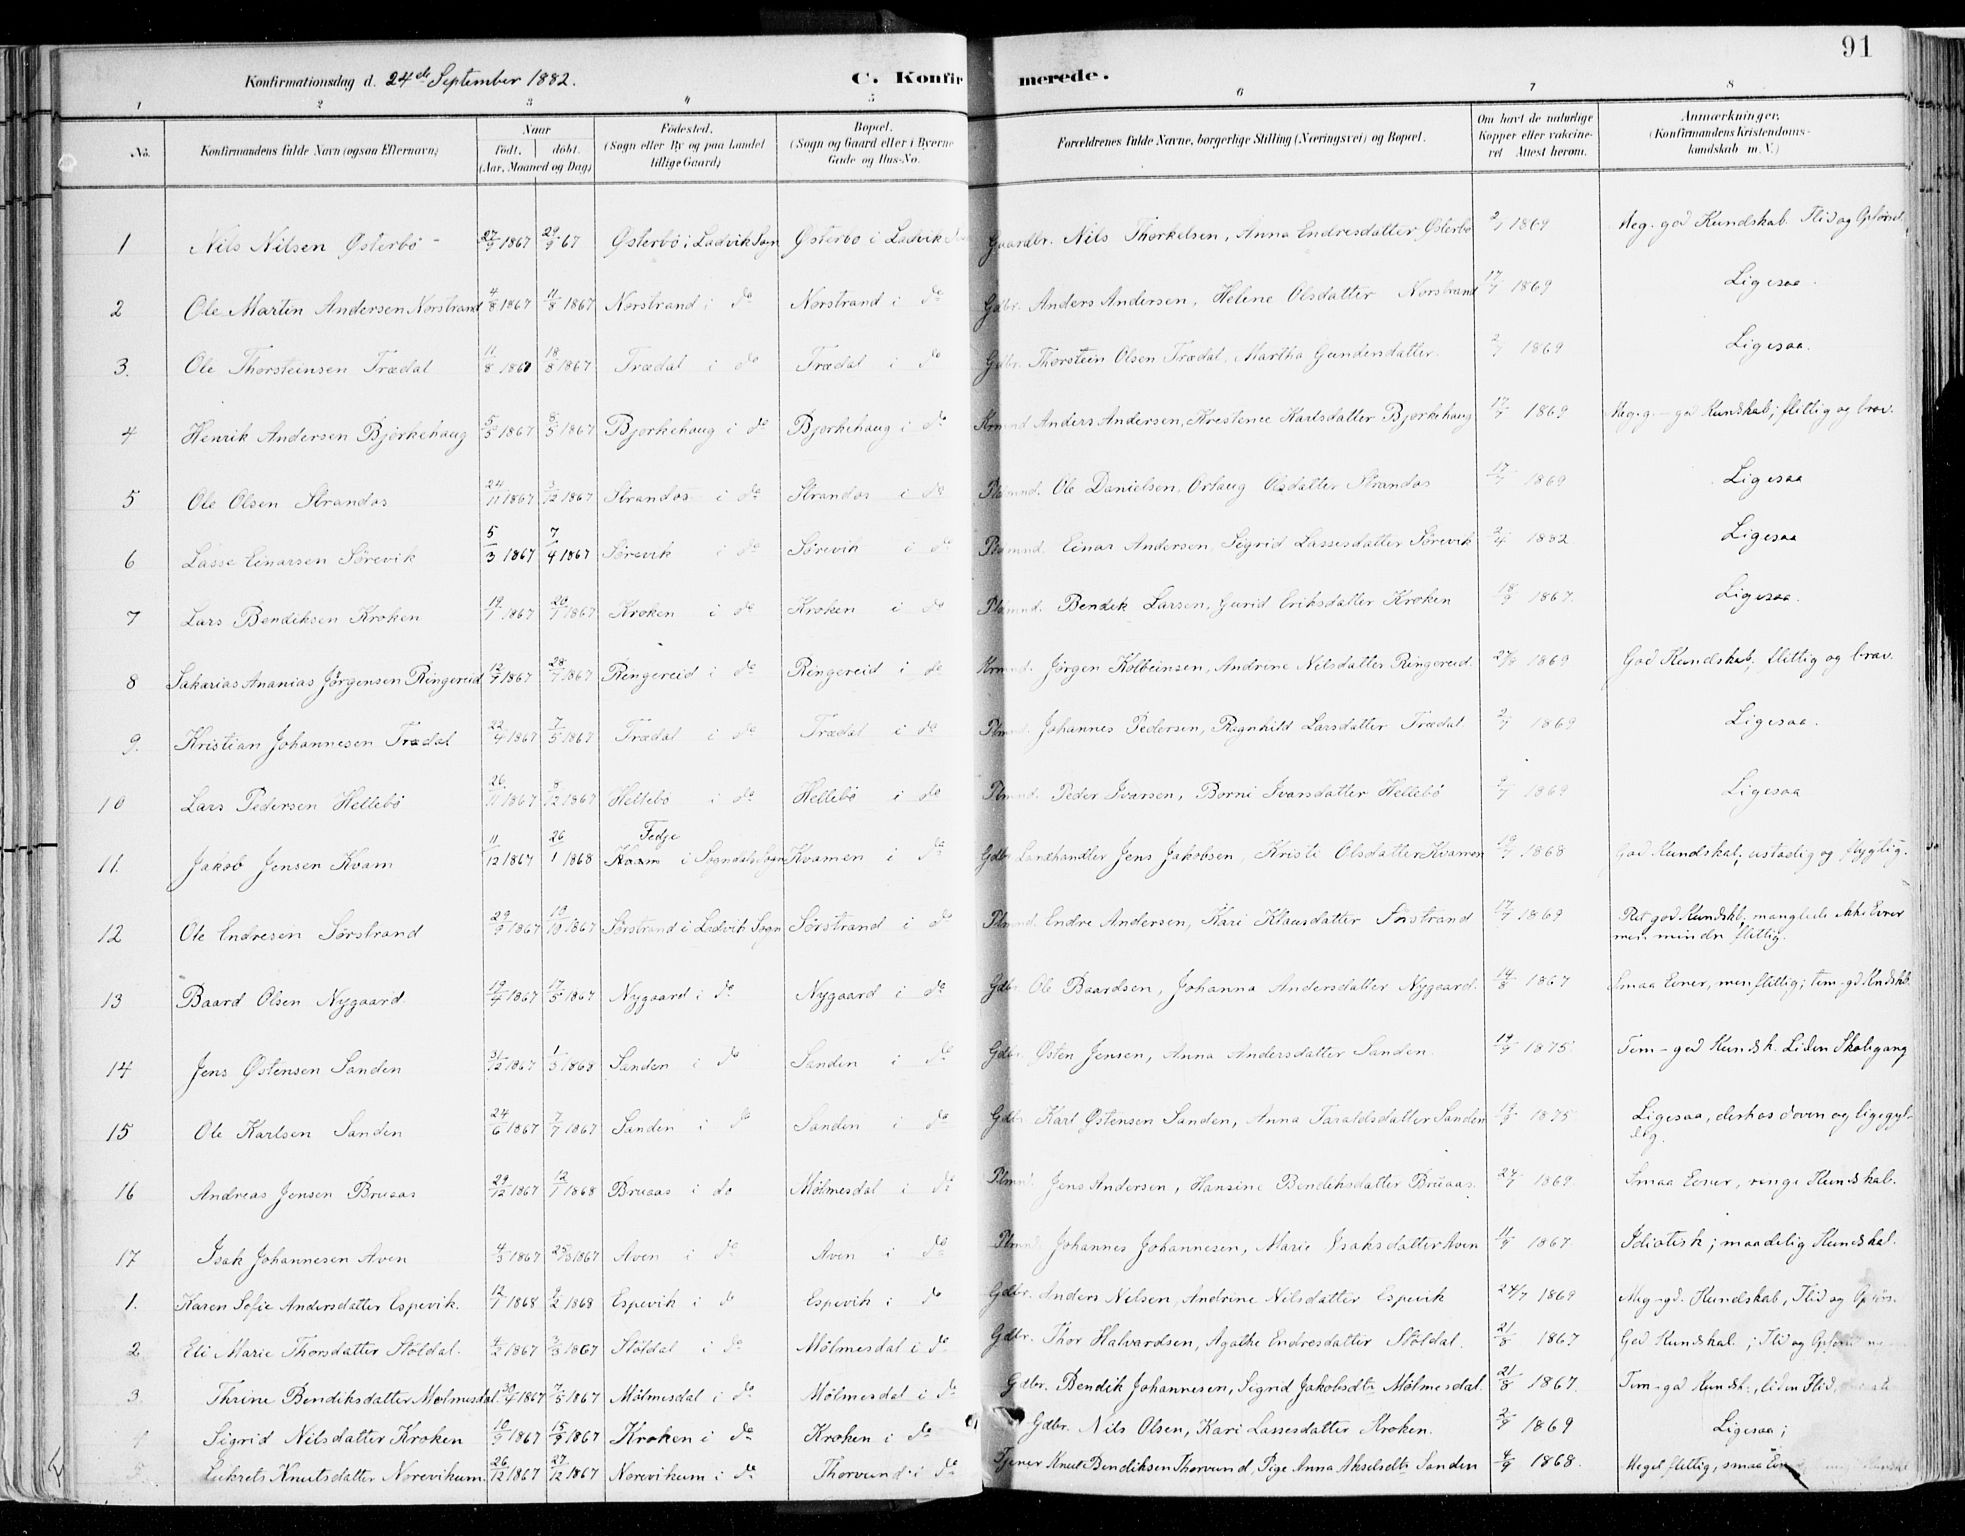 91
Konfirmationsdag d. 24de September 1882. C. Konfirmerede.
1 2 3 4 5 6 7 8
No. Konfirmandens fulde Navn (ogsaa Efternavn) Naar født. døbt. (Aar, Maaned og Dag) Fødested. (Sogn eller By og paa Landet tillige Gaard) Bopæl. (Sogn og Gaard eller i Byerne Gade og Hus-No. Forældrenes fulde Navne, borgerlige Stilling (Næringsvei) og Bopæl. Om havt de naturlige Kopper eller vakcineret Attest herom. Anmærkninger. (Konfirmandens Kristendomskundskab m. V.)
1 Nils Nilsen Østerbø 1867 67 Østerbø i Ladvik Sogn Østerbø i Ladvik Gaardbr. Nils Thorkelsen, Anna Endresdatter Østerbø 1869 Meg. god Kundskab. Flid og Opførsel
2 Ole Martin Andersen Norstrand 4/8 1867 11/8 1867 Norstrand i do Norstrand i do Gdbr. Anders Andersen, Helene Olsdatter Norstrand 1869 Ligesaa.
3. Ole Thorsteinsen Trædal 11/8 1867 18/8 1867 Trædal i do Trædal i do Gdbr. Thorstein Olsen Trædal, Martha Gundersdatter 1869 Ligesaa.
4 Henrik Andersen Bjørkehaug 5/5 1867 8/5 1867 Bjørkehaug i do Bjørkehaug i do Anders Andersen, Kristence Karlsdatter Bjørkehaug 1869 Meg. g. - god Kundskab; flittig og brav.
5 Ole Olsen Strandos 24/11 1867 3/12 1867 Strandos i do Strandos i do Plmnd. Ole Danielsen, Orlaug Olsdatter Strandos 1869 Ligesaa
6 Lasse Einarsen Sørevik 5/3 1867 7/4 1867 Sørevik i do Sørevik i do Plmnd. Einar Andersen, Sigrid Lassesdatter Sørevik 2/4 1882 Ligesaa
7 Lars Bendiksen Kroken 19/7 1867 20/7 1867 Kroken i do Kroken i do Plmnd. Bendik Larsen, Gurid Eriksdatter Kroken 18/9 1867. Ligesaa.
8 Sakarias Ananias Jørgensen Ringereid 12/7 1867 28/7 1867 Ringereid i do Ringereid i do Krmnd. Jørgen Kolbeinsen, Andrine Nilsdatter Ringereid. 1869 God Kundskab, flittig og brav.
9. Kristian Johannesen Trædal 22/4 1867 7/5 1867 Trædal i do Trædal i do Plmnd. Johannes Pedersen, Ragnhild Larsdatter Trædal 1869 Ligesaa.
10 Lars Pedersen Hellebø 26/11 1867 8/12 1867 Hellebø i do Hellebø i do Plmnd. Peder Ivarsen, Borni Ivarsdatter Hellebø 1869 Ligesaa
11. Jakob Jensen Kvam 11/12 1867 26/1 1868 Fedje Kvam i Sogndals Sogn Kvamen i do Gdbr. Landhandler Jens Jakobsen, Kristi Olsdatter Kvamen 1868 God Kundskab; ustadig og flygtig.
12 Ole Endresen Sørstrand 29/9 1867 13/10 1867 Sørstrand i Ladvik Sogn Sørstrand i do Plmnd. Endre Andersen, Kari Klausdatter Sørstrand 17/7 1869 Ret god Kundskb, manglede ikke Evner men mindre flittig.
13 Baard Olsen Nygaard 19/4 1867 17/5 1867 Nygaard i do Nygaard i do Gdbr. Ole Baardsen, Johanna Andersdatter Nygaard. 14/8 1867 Smaa Evner, men flittig; tem-gd Kndskb.
14 Jens Østensen Sanden 31/12 1867 1/3 1868 Sanden i do Sanden i do Gdbr. Østen Jensen, Anna Andersdatter Sanden 1875 Tem-god Kundsk. Liden Skolegang
15 Ole Karlsen Sanden 24/6 1867 7/7 1867 Sanden i do Sanden i do Gdbr. Karl Østensen Sanden, Anna Taraldsdatter Sanden 1875 Ligesaa, derhos doven og ligegyldig.
16 Andreas Jensen Bruaas 29/12 1867 12/1 1868 Bruaas i do Mølmesdal i do Plmnd. Jens Andersen, Hansine Bendiksdatter Bruaas. 1869 Smaa Evner, ringe Kundskab.
17 Isak Johannesen Aven 4/3 1867 25/3 1867 Aven i do Aven i do Plmnd. Johannes Johannesen, Marie Isaksdatter Aven 1867 Idiotisk; maadelig Kundskab.
1. Karen Sofie Andersdatter Espevik. 12/1 1868 9/2 1868 Espevik i do Espevik i do Gdbr. Anders Nilsen, Andrine Nilsdatter Espevik 24/7 1869 Meg-gd. Kundskab, Flid og Opførs.
2 Eli Marie Thorsdatter Støldal. 4/2 1867 3/3 1867 Støldal i do Mølmesdal i do Gdbr. Thor Halvardsen, Agathe Endresdatter Støldal. 21/8 1867 God Kundskab; Flid og Opførsel
3 Thrine Bendiksdatter Mølmesdal 1867 7/5 1867 Mølmesdal i do Mølmesdal i do Gdbr. Bendik Johannesen, Sigrid Jakobsdtr Mølmesdal. 21/8 1867. Tem-gd Kundsk., liden Flid,
Sigrid Nilsdatter Kroken 10/9 1867 15/9 1867 Kroken i do Kroken i do Gdbr. Nils Olsen, Kari Lassesdatter Kroken. 1869 Ligesaa;
5 Lukrets Knutsdatter Norevikum. 26/12 1867 27/12 1867 Norevikum i do Thorvund i do Tjener Knut Bendiksen Thorvund, Pige Anna Akselsdtr Sanden 4/9 1868. Meget flittig, smaa